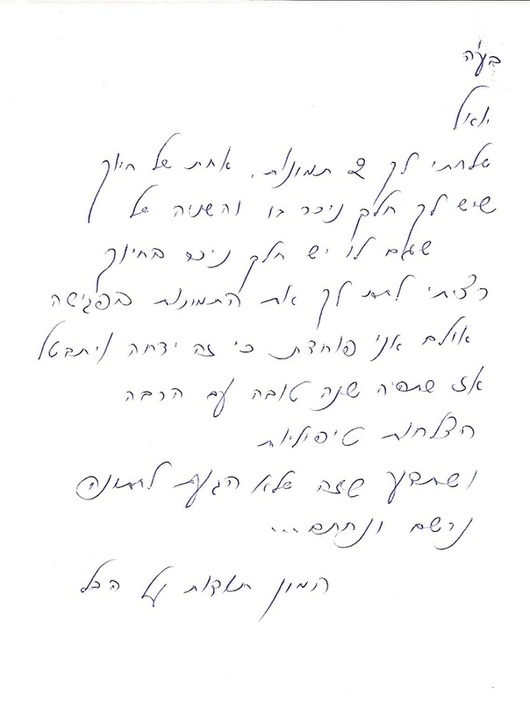 בע"ה
יואל
שלחתי לך 2 תמונות. אחת של חיוך
שיש לך חלק ניכר בו והשניה של
שגם לו יש חלק ניכר בחיוך
רציתי לתת לך את התמונות בפגישה
אולם אני פוחדת כי זה ידחה ויתבטל
אז שתהיה שנה טובה עם הרבה
הצלחות טיפוליות
ושתדע שזה שלא הגעת לחתונה
נרשם ונחתם...
המון תודות על הכל